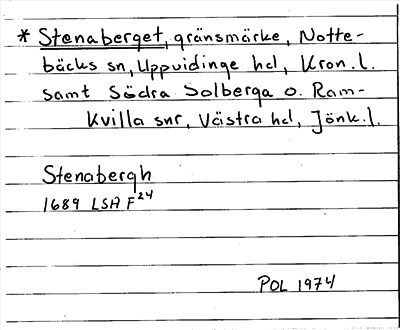 * Stenaberget, gränsmärke, Notte-
bäcks sn, Uppvidinge hd, Kron.l.
samt Södra Solberga o. Ram-
kvilla snr, Västra hd, Jönk.l.
Stenabergh
1689 LSA F24
POL 1974